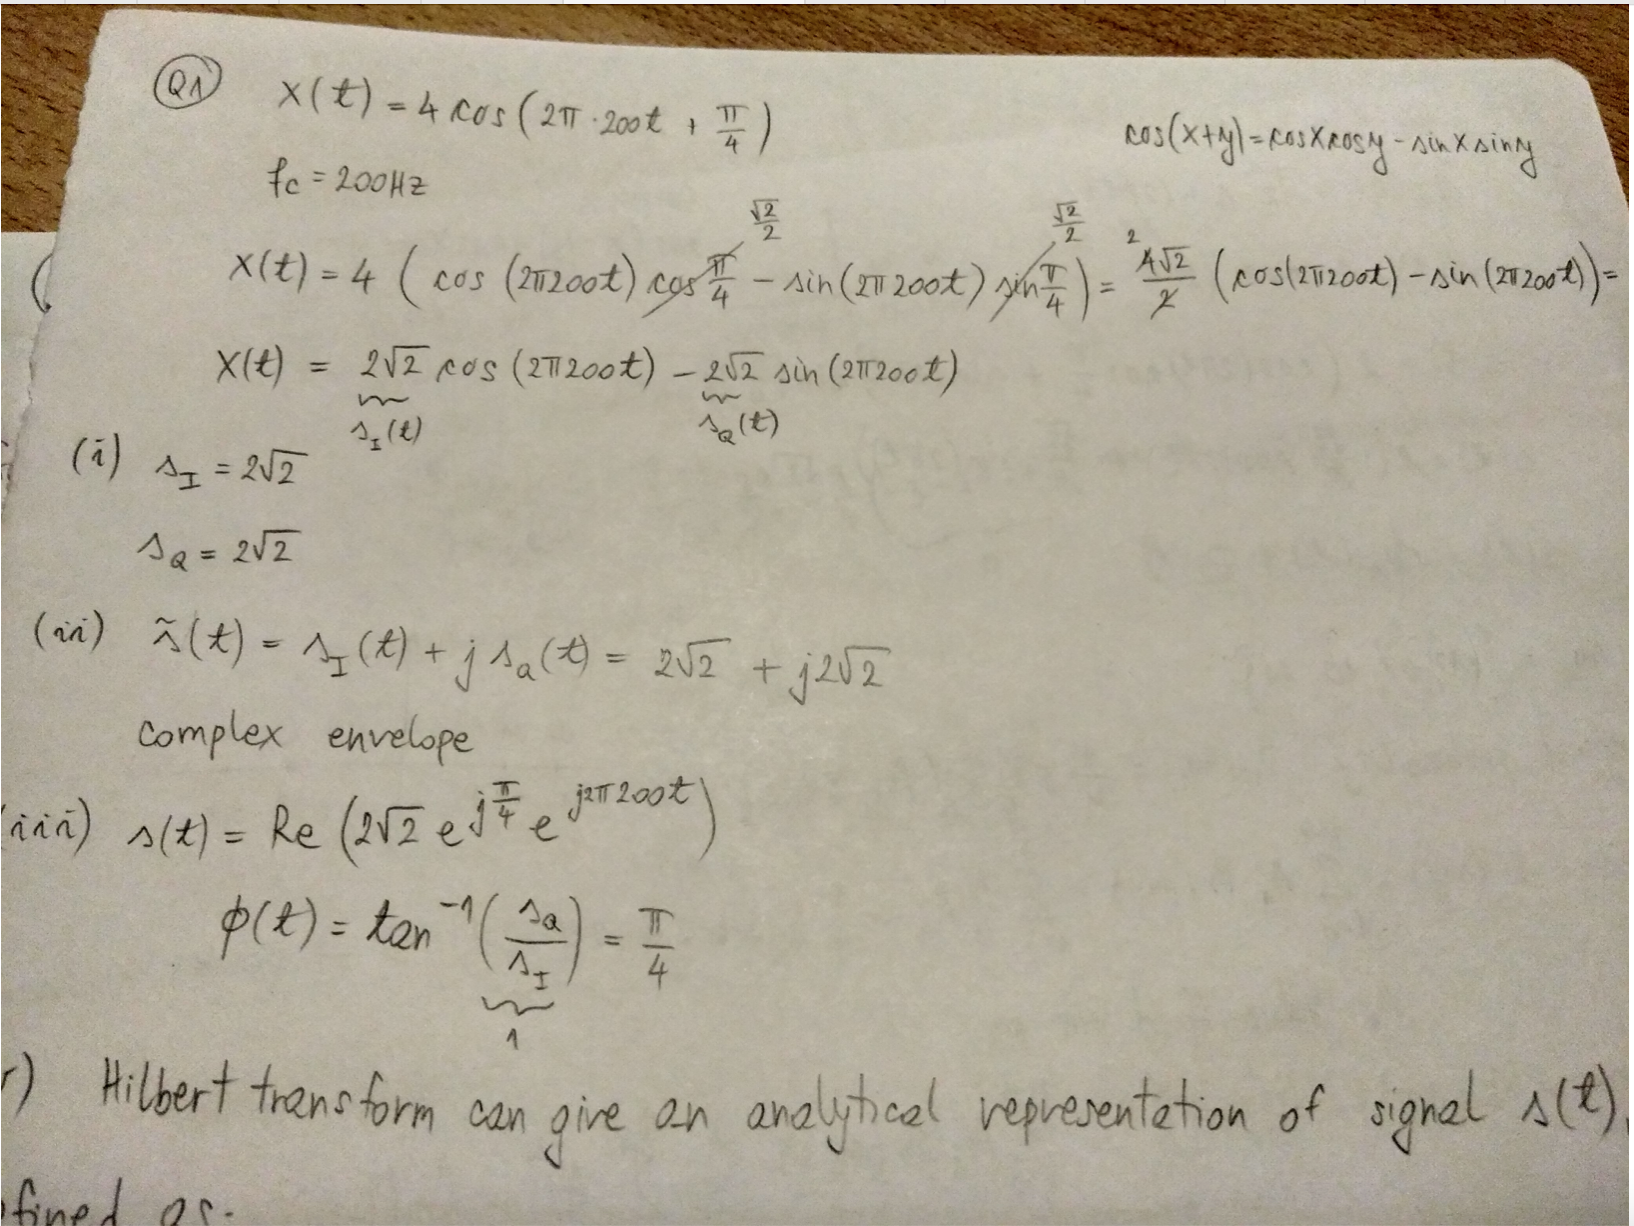 Q1 x(t) = 4 cos(2π·200t + π/4)
cos(x+y)=cosxcosy-sinxsiny
fc = 200Hz
x(t) = 4 ( cos (2π200t) cos π/4 - sin(2π200t) sin π/4 ) = 4√2/2 (cos(2π200t) - sin(2π200t)) =
√2/2 √2/2 2
x(t) = 2√2 cos (2π200t) - 2√2 sin (2π200t)
s_I(t) s_Q(t)
(i) s_I = 2√2
s_Q = 2√2
(ii) s̃(t) = s_I(t) + j s_Q(t) = 2√2 + j2√2
complex envelope
(iii) s(t) = Re (2√2 e^{jπ/4} e^{j2π200t})
φ(t) = tan⁻¹(s_Q/s_I) = π/4
1
) Hilbert transform can give an analytical representation of signal s(t),
fined as: